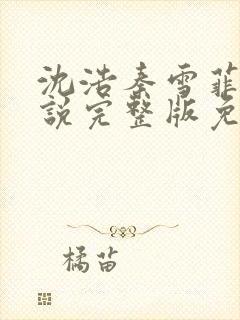 沈浩秦雪菲
说完整版免
橘苗